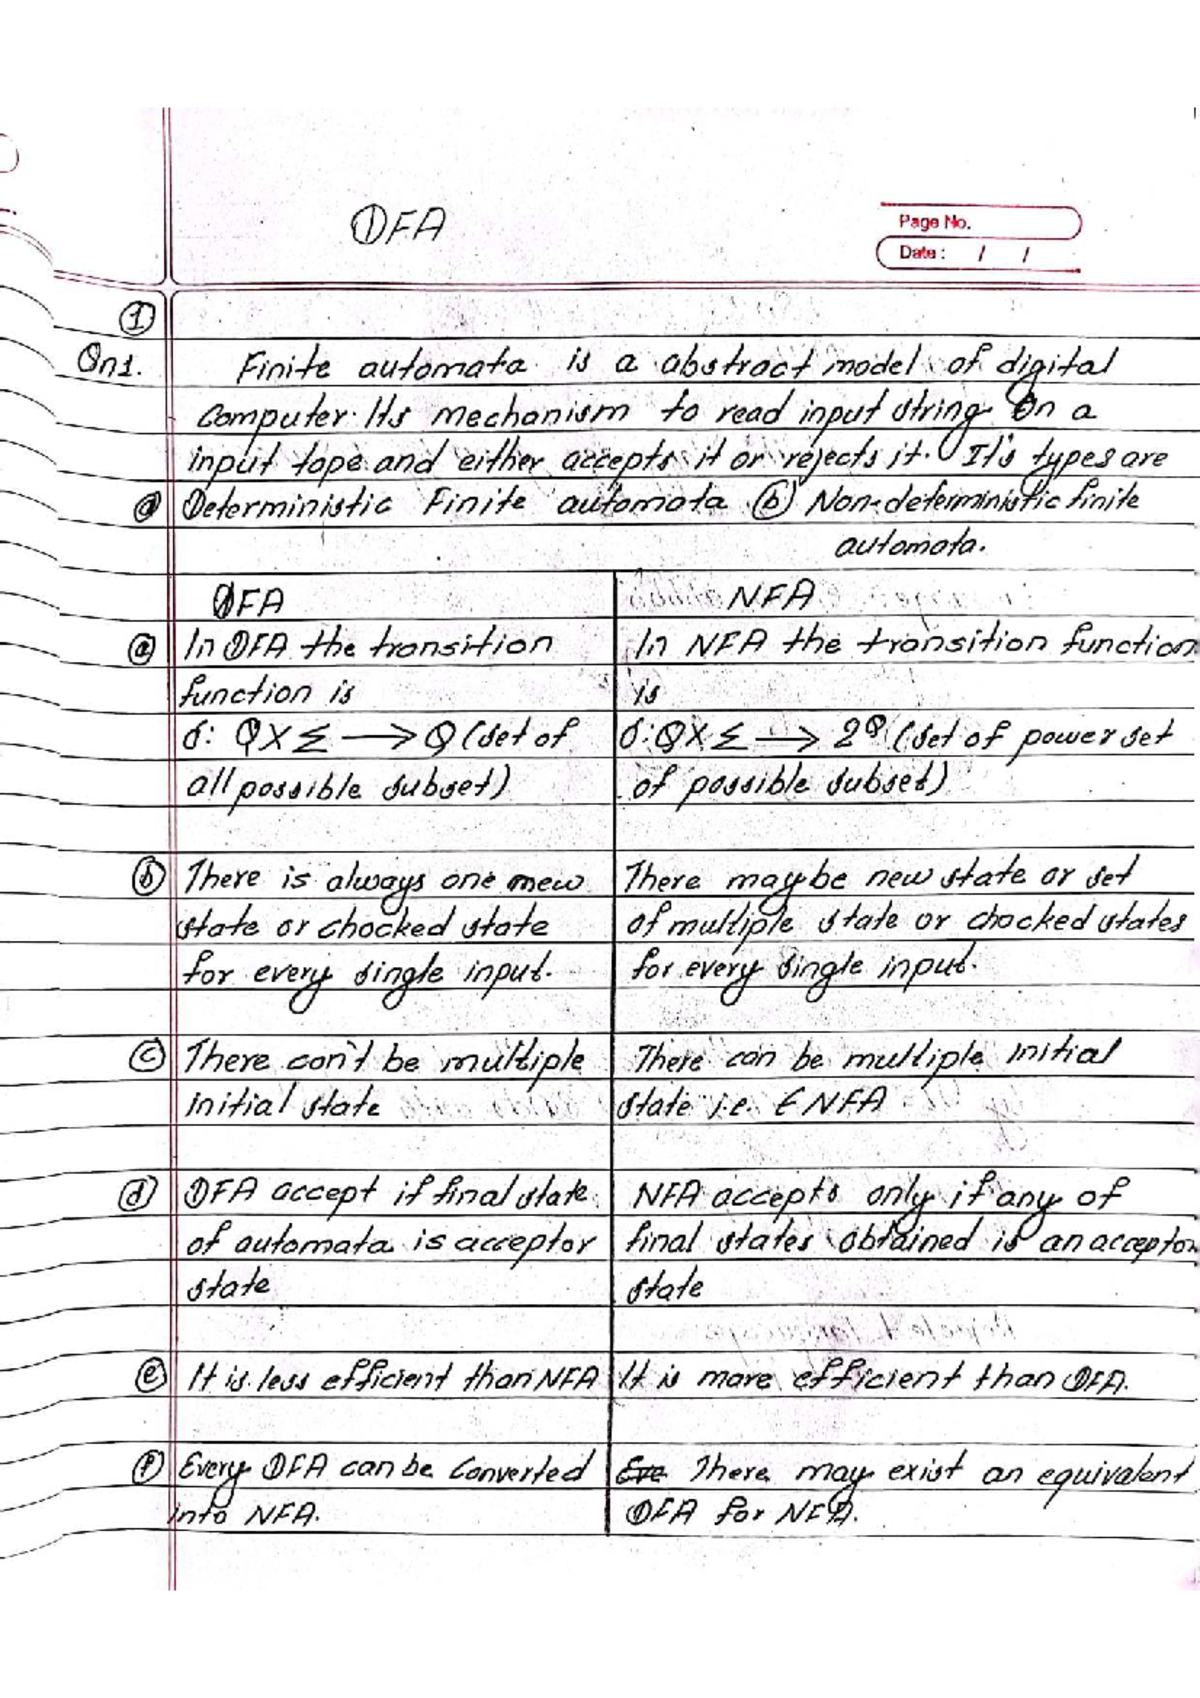 DFA
Page No.
Date : / /
①
Qn1. Finite automata is a abstract model of digital
Computer. Its mechanism to read input string On a
input tape and either accepts it or rejects it. It's types are
ⓐ Deterministic Finite automata ⓑ Non-deterministic finite
automata.
DFA NFA
ⓐ In DFA the transition In NFA the transition function
function is is
δ: Q X Σ → Q (set of δ: Q X Σ → 2^Q (set of power set
all possible subset) of possible subset)
ⓑ There is always one new There may be new state or set
state or chocked state of multiple state or chocked states
for every single input. for every single input.
ⓒ There can't be multiple There can be multiple initial
initial state state i.e. ENFA
ⓓ DFA accept if final state NFA accepts only if any of
of automata is acceptor final states obtained is an acceptor
state state
ⓔ It is less efficient than NFA It is more efficient than DFA.
ⓕ Every DFA can be Converted Eve There may exist an equivalent
into NFA. DFA for NFA.